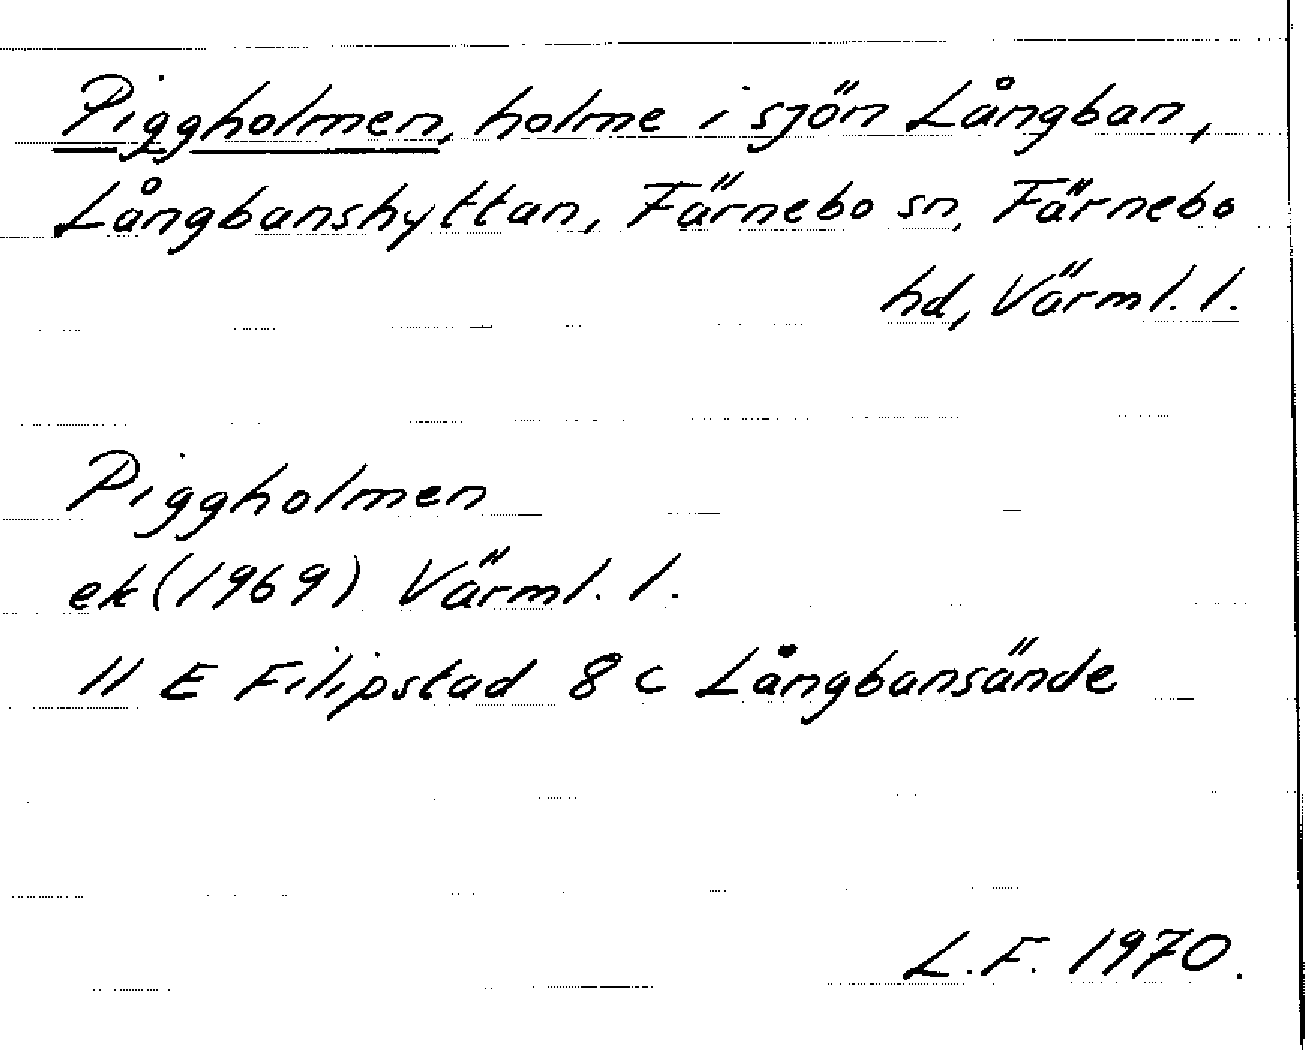 Piggholmen, holme i sjön Långban,
Långbanshyttan, Färnebo sn, Färnebo
hd, Värml. l.
Piggholmen
ek (1969) Värml. l.
11 E Filipstad 8 c Långbansände
L.F. 1970.